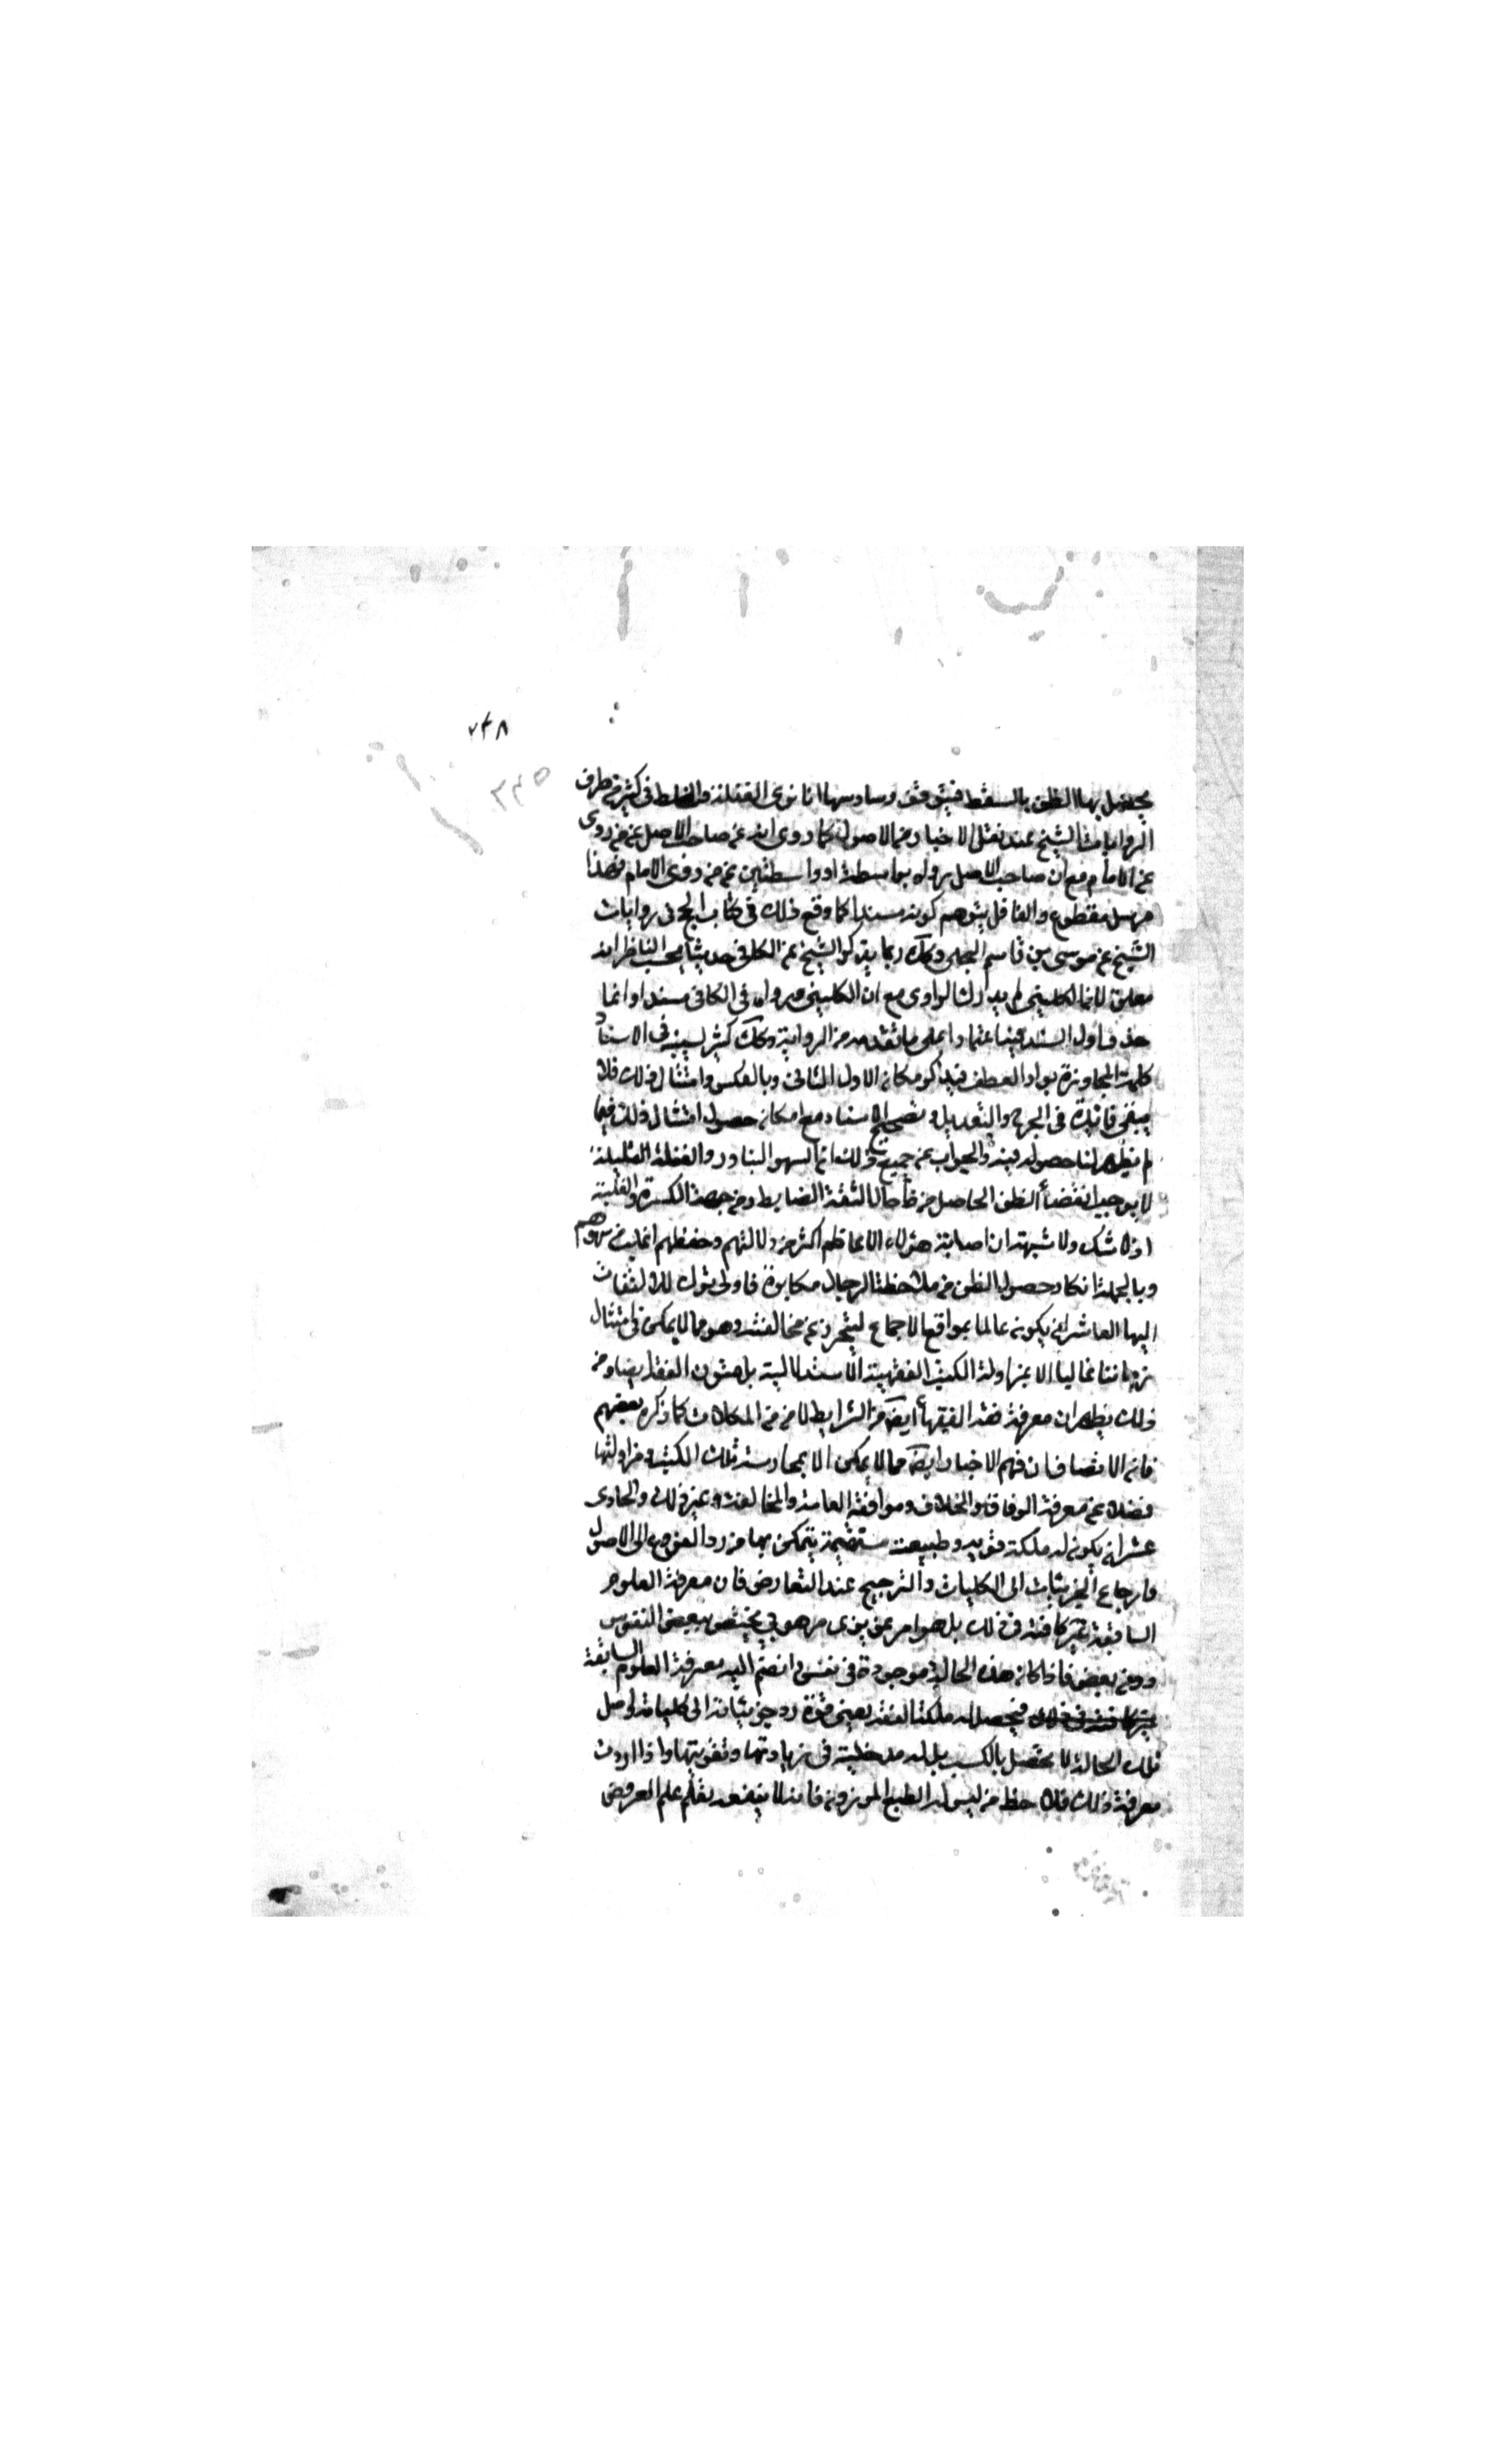 ٢٤٨
٣٤٥
يحصل بها الظن بالسقط فيتوقف وسادسها انا نرى الغفلة والغلط في كثير من طرق
الروايات الشيخ عند نقل الاخبار من الاصول كما روى انه عن صاحب الاصل عن من روى
عن الامام مع ان صاحب الاصل يرواه بواسطة او واسطتين عن من روى عن الامام فهذا
مرسل مقطوع والغافل يتوهم كونه مسندا كما وقع ذلك في كتاب الحج في روايات
الشيخ عن موسى بن قاسم البجلي وكك ربما يترك الشيخ عن الكافي حديثا يحسب الناظر انه
معلق لان الكليني لم يدرك الراوي مع ان الكليني يرواه في الكافي مسندا وانما
حذف اول السند فيه اعتمادا على ما تقدمه من الرواية وكك كثير يسينه في الاسناد
كلمة المجاوزة بواو العطف فيذكر مكان الاول الثاني وبالعكس وامثال ذلك فلا
يبقى فائدة في الجرح والتعديل وتصحيح الاسناد مع امكان حصول امثال ذلك فيما
لم يظهر لنا حصوله فيه والجواب عن جميع ذلك ان السهو النادر والغفلة القليلة
لا يوجب انقضاء الظن الحاصل من ظاحال الثقة الضابط ومن جهة الكثرة والغلبة
اذ لا شك ولا شبهة ان اصابة هؤلاء الاعاظم اكثر من زلالتهم وحفظهم اغلب من سهوهم
وبالجملة انكار حصول الظن من ملاحظة الرجال مكابرة فاولى بترك للالتفات
اليها العاشر ان يكون عالما بمواقع الاجماع ليتحرز عن مخالفته وهو مما لا يمكن في امثال
زماننا غالبا الا بمزاولة الكتب الفقهية الاستدلالية بل متون الفقه ايضا ومن
ذلك يظهر ان معرفة فقه الفقهاء ايضَ من الشرايط لا من المكملات كما ذكره بعضهم
فان الانصاف ان فهم الاخبار ايضَ مما لا يمكن الا بممارسة تلك الكتب ومزاولتها
فضلا عن معرفة الوفاق والخلاف وموافقة العامة والمخالفة وغير ذلك والحادي
عشر ان يكون له ملكة قوية وطبيعة مستقيمة يتمكن بها من رد الفروع الى الاصول
وارجاع الجزئيات الى الكليات والترجيح عند التعارض فان معرفة العلوم
السابقة غير كافية في ذلك بل هو امر غريزي موهوبي يختص ببعض النفوس
دون بعض فاذا كان هذه الحالة موجودة في نفس وانضم اليه معرفة العلوم السابقة
فيحصل له ملكة الفقه يعني قوة رد جزئياته الى كلياته واصل
تلك الحالة لا يحصل بالكسب بل له مدخلية في زيادتها وتقويتها واذا اردت
معرفة ذلك فلاحظ من ليس له الطبع الموزون فانه لا ينفعه تعلم علم العروض